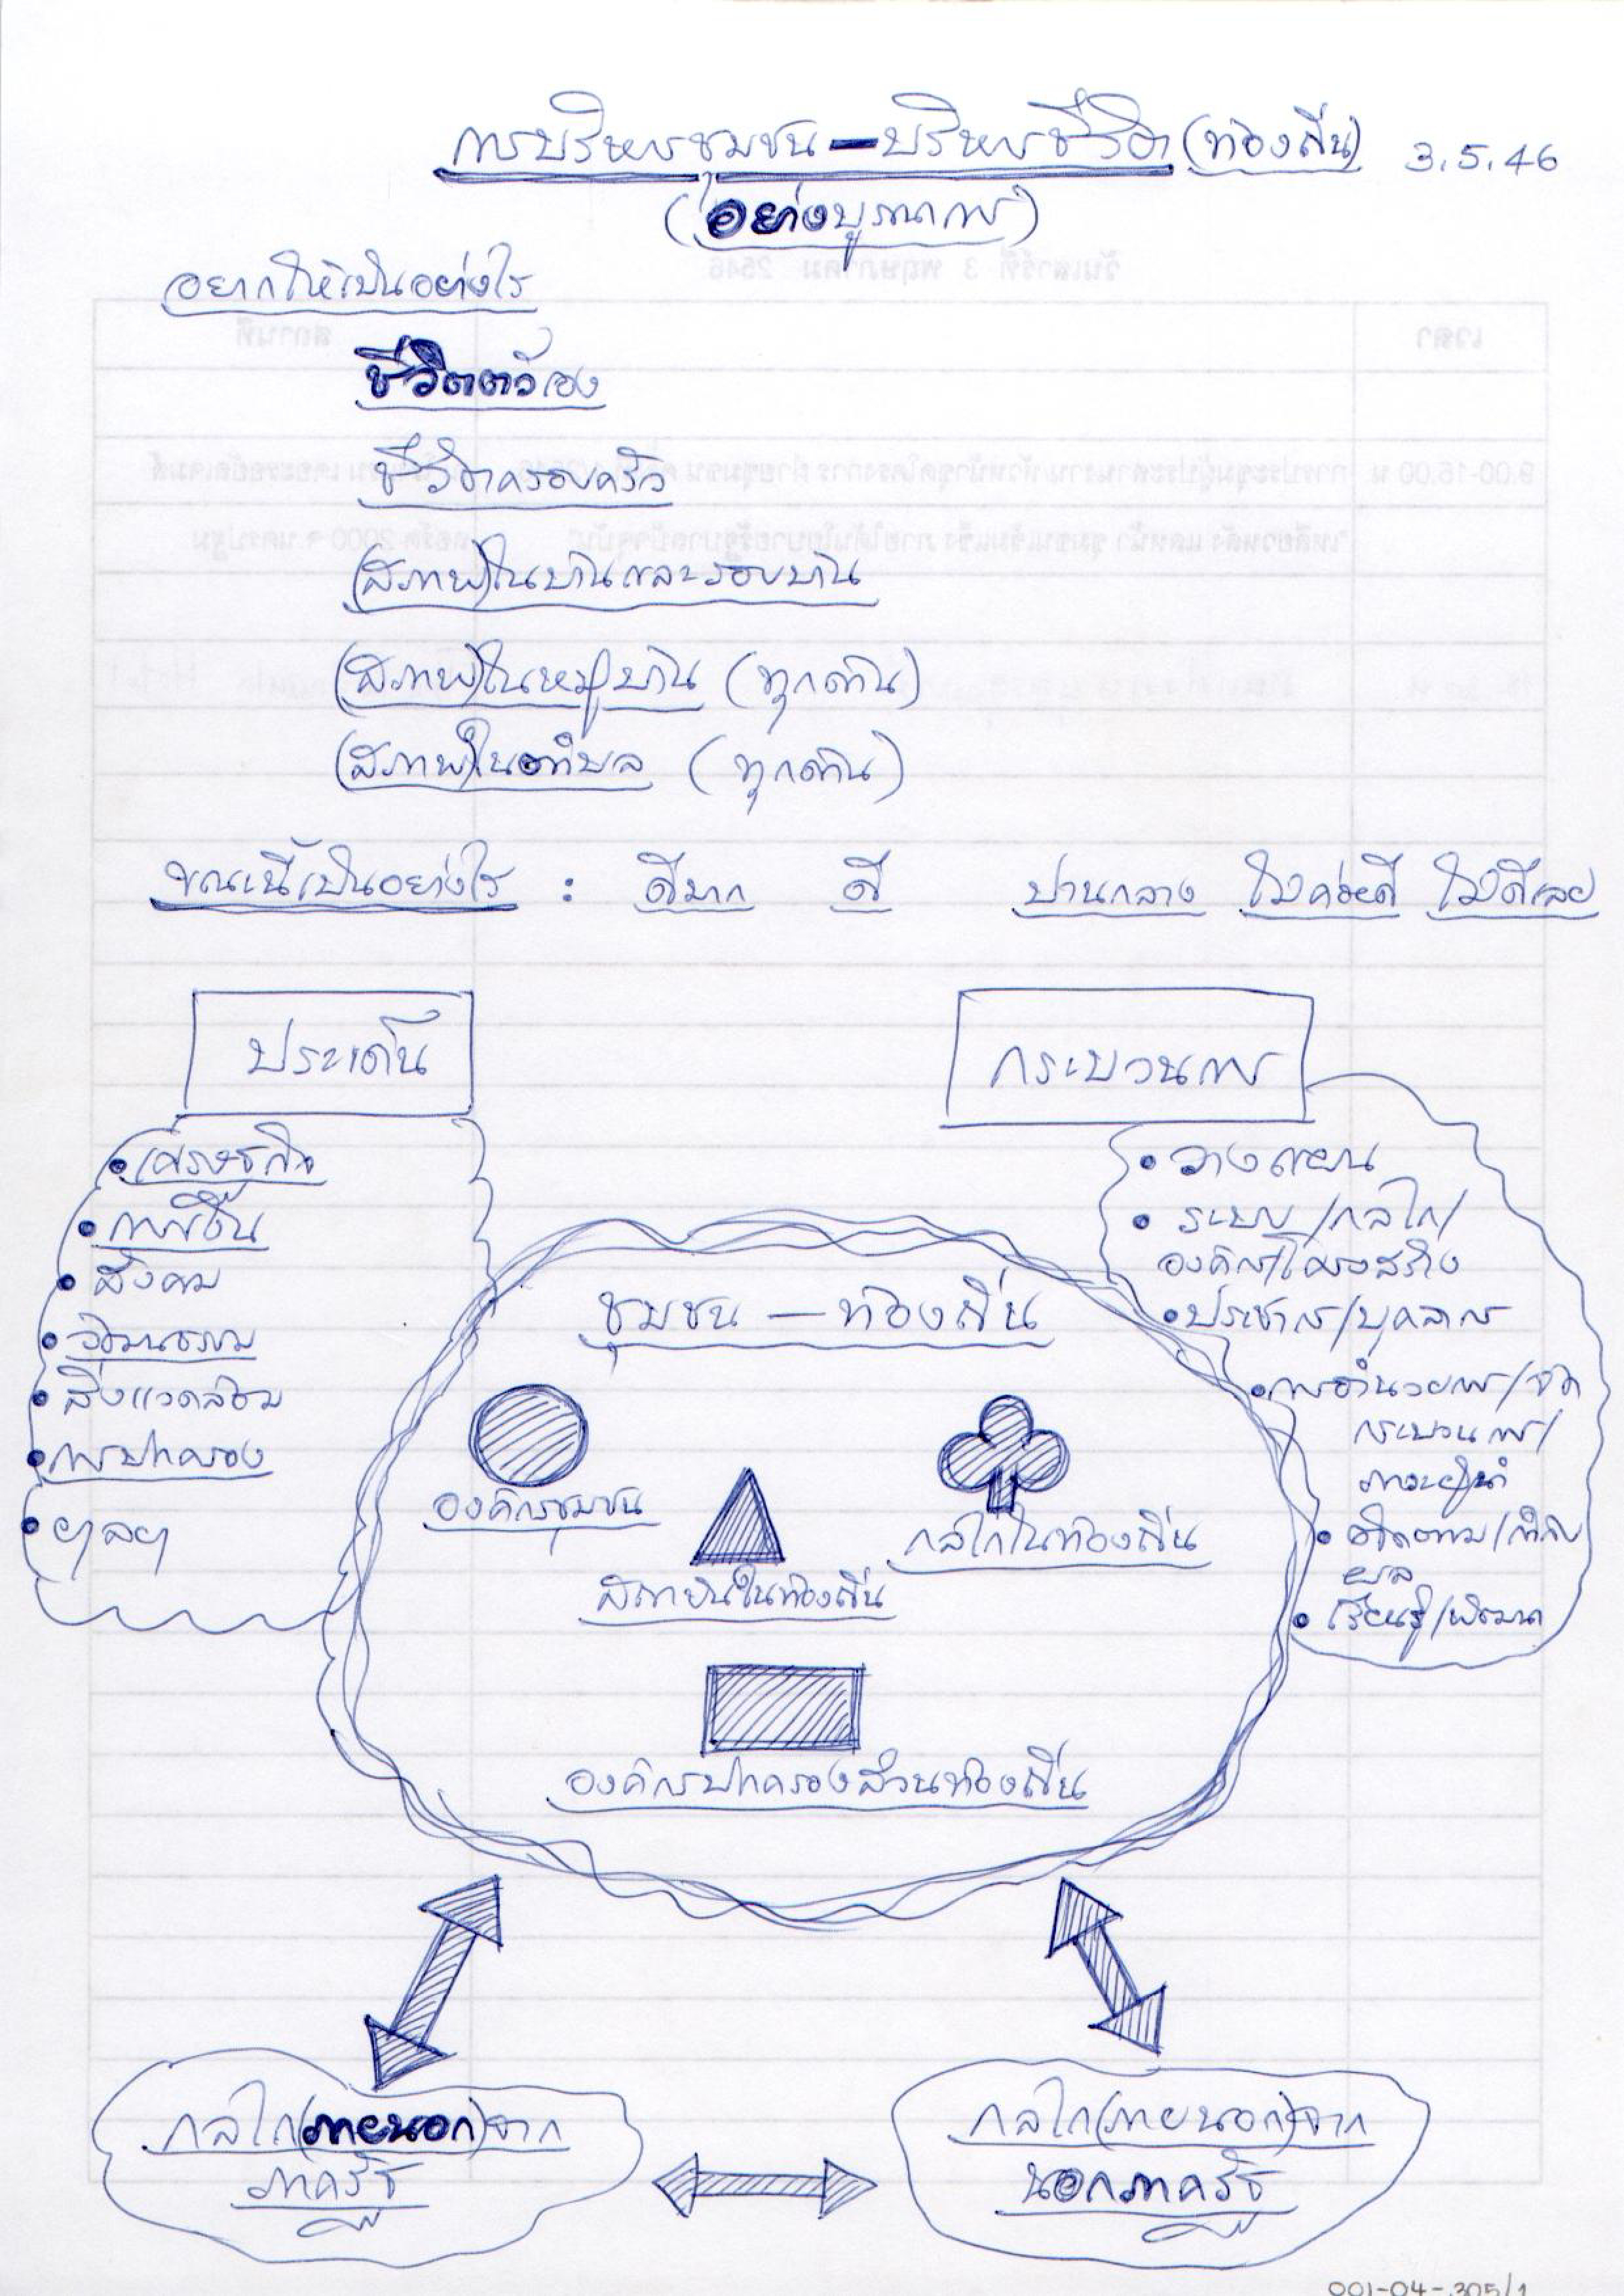 การบริหารชุมชน – บริหารชีวิต (ท้องถิ่น) 3.5.46
(อย่างบูรณาการ)
อยากให้เป็นอย่างไร
ชีวิตตัวเอง
ชีวิตครอบครัว
(สภาพ)ในบ้านและรอบบ้าน
(สภาพ)ในหมู่บ้าน (ทุกด้าน)
(สภาพ)ในตำบล (ทุกด้าน)
ขณะนี้เป็นอย่างไร : ดีมาก ดี ปานกลาง ไม่ค่อยดี ไม่ดีเลย
ประเด็น
• เศรษฐกิจ
•
• สังคม
• วัฒนธรรม
• สิ่งแวดล้อม
• การปกครอง
• ฯลฯ
กระบวนการ
• วางแผน
• ระบบ/กลไก/
องค์กร/โครงสร้าง
• ประชากร/บุคลากร
• การอำนวยการ/จัด
กระบวนการ/
ภาวะผู้นำ
• ติดตาม/กำกับ
ผล
• เรียนรู้/พัฒนา
ชุมชน – ท้องถิ่น
องค์กรชุมชน
กลไกในท้องถิ่น
สถาบันในท้องถิ่น
องค์กรปกครองส่วนท้องถิ่น
กลไก(ภายนอก)จาก
ภาครัฐ
กลไก(ภายนอก)จาก
นอกภาครัฐ
001-04-305/1